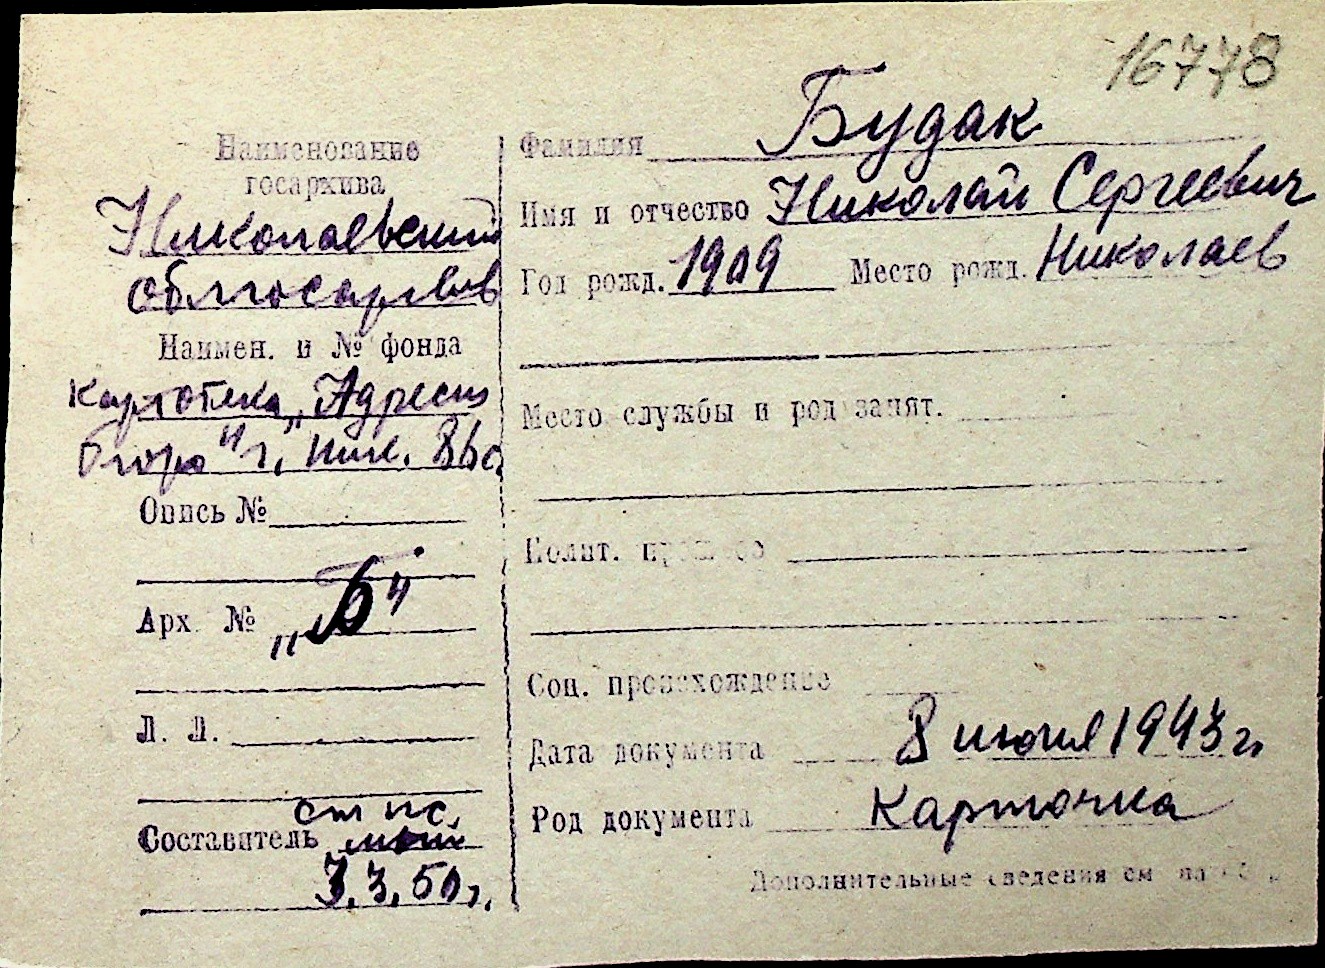 16778
Наименование
госархива
Николаевский
облгосархив
Наимен. и № фонда
Картотека „Адресн
бюро" г. Ник.
Опись №
Арх. № „Б"
Л. Л.
ст пс.
Составитель
3.3.50г.
Фамилия Будак
Имя и отчество Николай Сергеевич
Год рожд. 1909 Место рожд. Николаев
Место службы и род занят.
Полит. прошлое
Соц. происхождение
Дата документа 8 июля 1943 г.
Род документа Карточка
Дополнительные сведения см на об